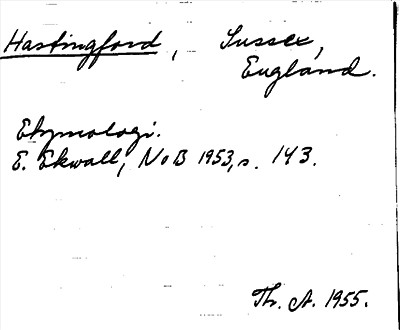 Hastingford, Sussex,
England.
Etymologi.
E. Ekwall, NoB 1953, s. 143.
Th. A. 1955.